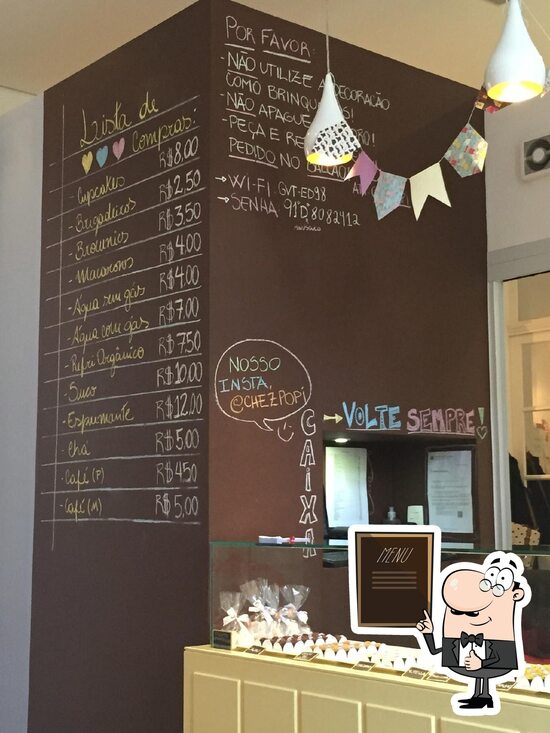 Lista de
Compras:
Cupcakes R$8,00
- Brigadeiros R$2,50
- Brownies R$3,50
- Macarons R$4,00
- Água sem gás R$4,00
- Água com gás R$7,00
- Refri Orgânico R$7,50
- Suco R$10,00
- Espumante R$12,00
- Chá R$5,00
- Café (P) R$4,50
- Café (M) R$5,00
POR FAVOR:
- NÃO UTILIZE A DECORAÇÃO
COMO
- NÃO
- PEÇA E
PEDIDO NO
→ WI-FI GVT-ED98
→ SENHA
NOSSO
INSTA,
@CHEZPOPÍ
CAIXA
→ VOLTE SEMPRE!
MENU